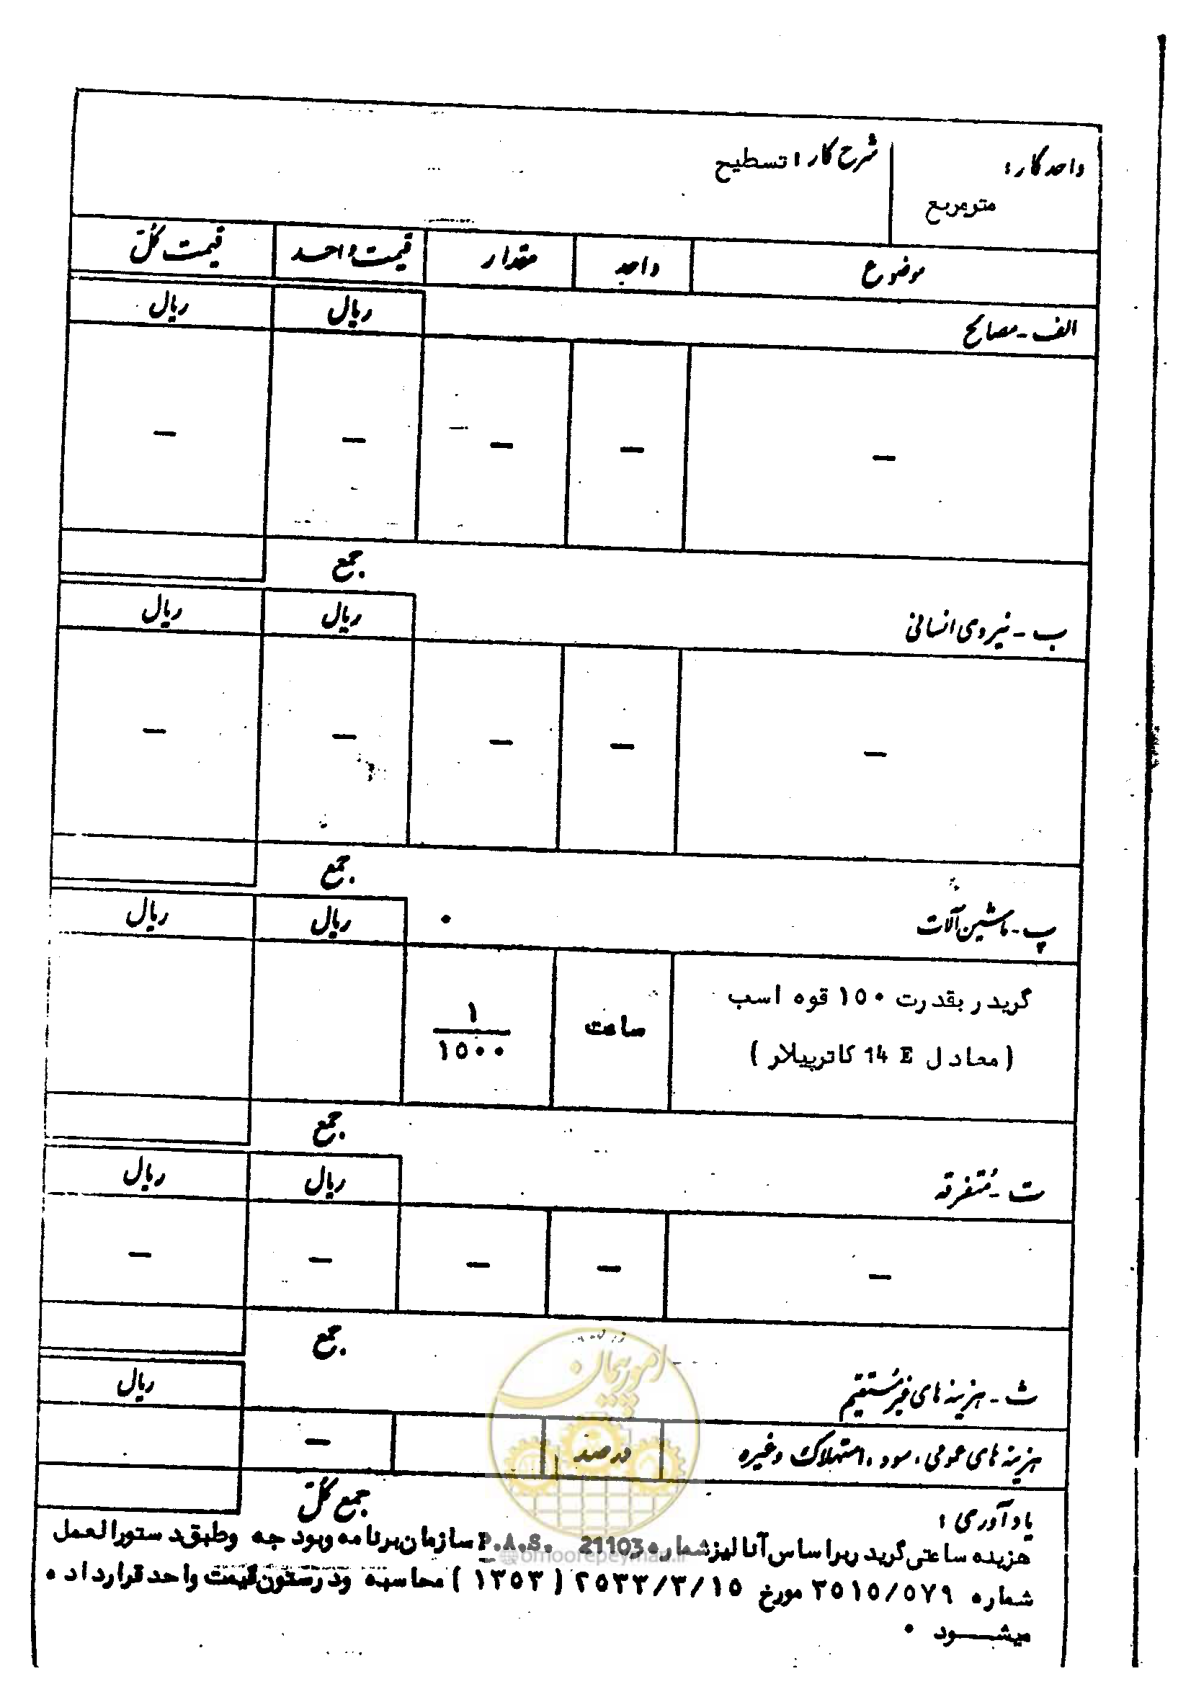 واحد کار :
شرح کار : تسطیح
مترمربع
موضوع واحد مقدار قیمت واحد قیمت کل
الف - مصالح ریال ریال
— — — — —
جمع
ب - نیروی انسانی ریال ریال
— — — — —
جمع
پ - ماشین آلات ریال ریال
گریدر بقدرت ۱۵۰ قوه اسب
(معادل 14 E کاترپیلار)
ساعت
۱
۱۵۰۰
جمع
ت - متفرقه ریال ریال
— — — — —
جمع
ث - هزینه های غیر مستقیم ریال
هزینه های عمومی ، سود ، استهلاک وغیره درصد —
جمع کل
یادآوری :
هزینه ساعتی گریدر براساس آنالیز شماره 21103 P.A.S. سازمان برنامه وبودجه وطبق دستورالعمل
شماره ۳۵۱۵/۵۷۹ مورخ ۲۵۳۳/۳/۱۵ (۱۳۵۳) محاسبه ودرستون قیمت واحد قرارداده
میشود .
امور پیمان
@omoorepeyman.ir